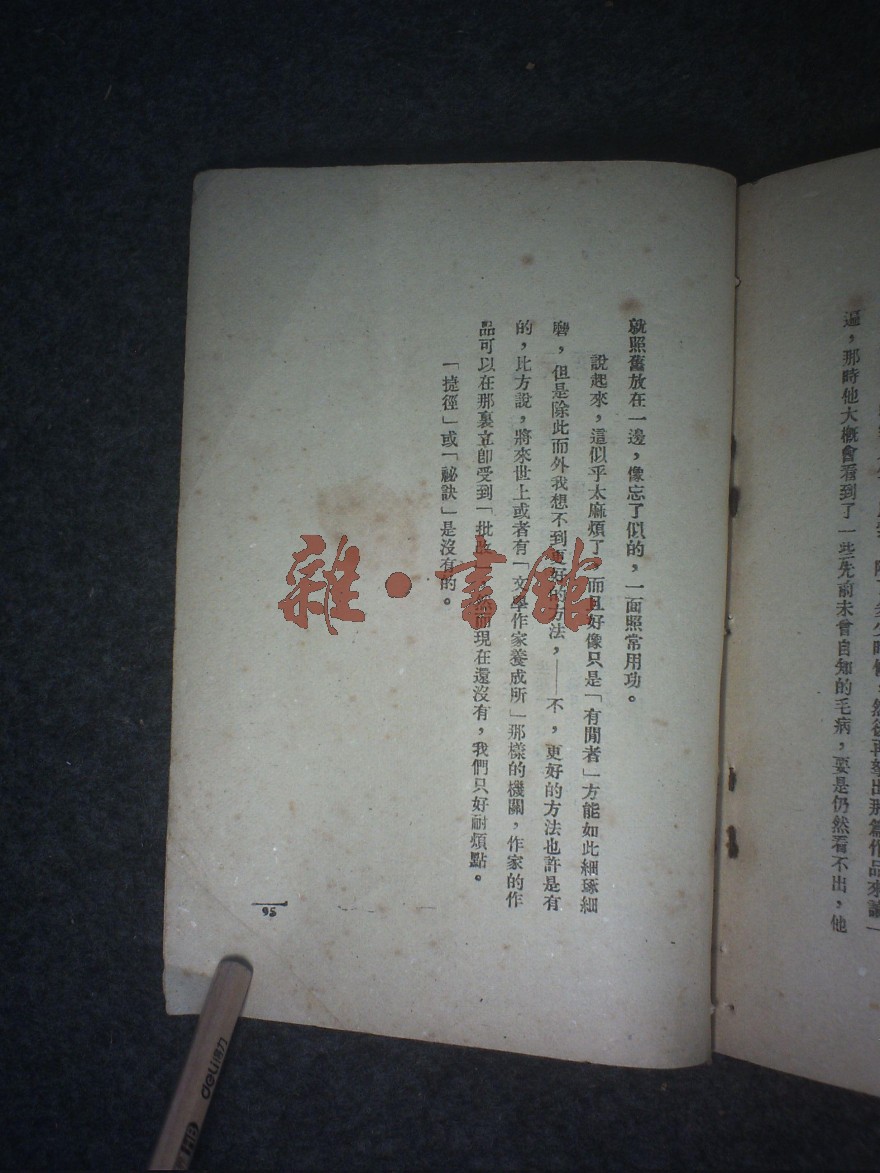 遍，那時他大概會看到了一些先前未曾自知的毛病，要是仍然看不出，他
就照舊放在一邊，像忘了似的，一面照常用功。
說起來，這似乎太麻煩了，而且好像只是「有閒者」方能如此細琢細
磨，但是除此而外我想不到更好的方法，——不，更好的方法也許是有
的，比方說，將來世上或者有「文學作家養成所」那樣的機關，作家的作
品可以在那裏立卽受到「批改」然而現在還沒有，我們只好耐煩點。
「捷徑」或「祕訣」是沒有的。
95
雜·書館
deli得力
HB